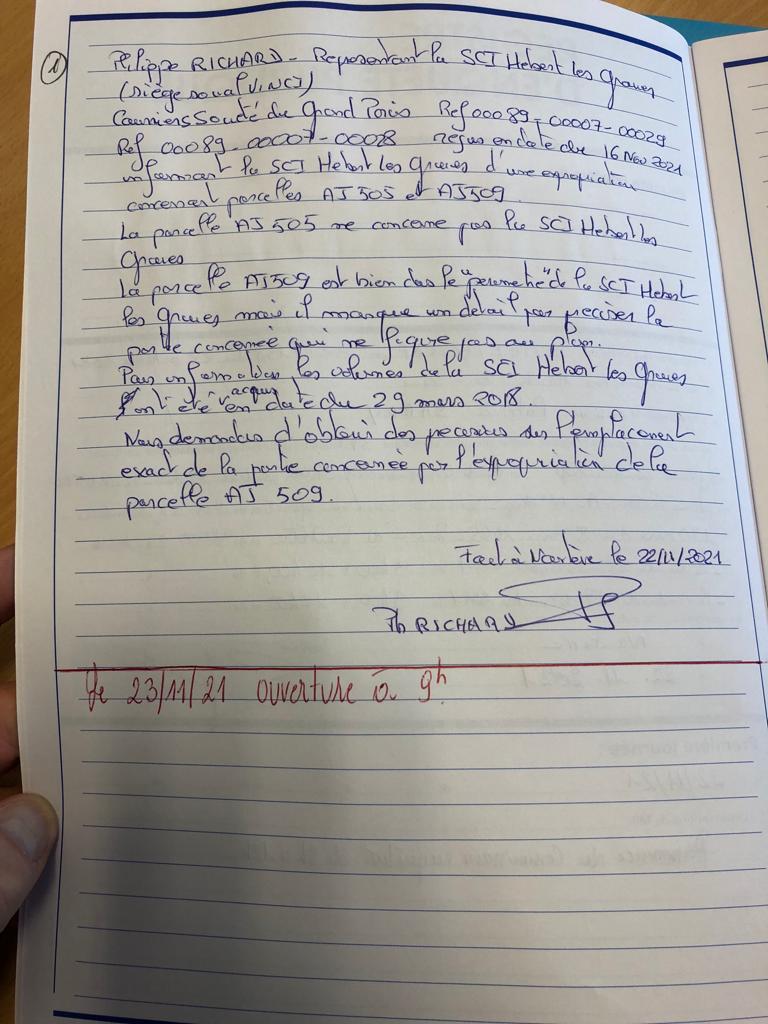 1
Philippe RICHARD - Représentant la SCI Hebert les Graves
(siège social VINCI)
Courriers Société du Grand Paris Ref 00089-00007-00029
Ref 00089-00007-00028 reçus en date du 16 Nov 2021
informant la SCI Hebert les Graves d'une expropriation
concernant parcelles AJ 505 et AJ509.
La parcelle AJ 505 ne concerne pas la SCI Hebert les
Graves
La parcelle AJ509 est bien dans le "perimetre" de la SCI Hebert
les Graves mais il manque un détail pour préciser la
partie concernée qui ne figure pas au plan.
Pour information les volumes de la SCI Hebert les Graves
ont été acquis en date du 29 mars 2018.
Nous demandons d'obtenir des precisions sur l'emplacement
exact de la partie concernée par l'expropriation de la
parcelle AJ 509.
Fait à Nanterre le 22/11/2021
Ph RICHARD
Le 23/11/21 ouverture à 9h.